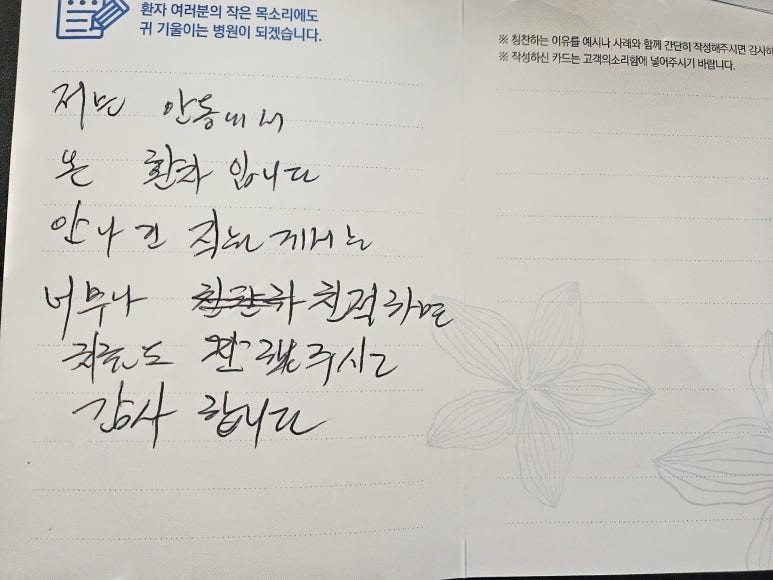 환자 여러분의 작은 목소리에도
귀 기울이는 병원이 되겠습니다.
※ 칭찬하는 이유를 예시나 사례와 함께 간단히 작성해주시면 감사하
※ 작성하신 카드는 고객의소리함에 넣어주시기 바랍니다.
저는 안동에서
온 환자 입니다
안나 간 직원 께서는
너무나 친절하며
주시고
감사 합니다